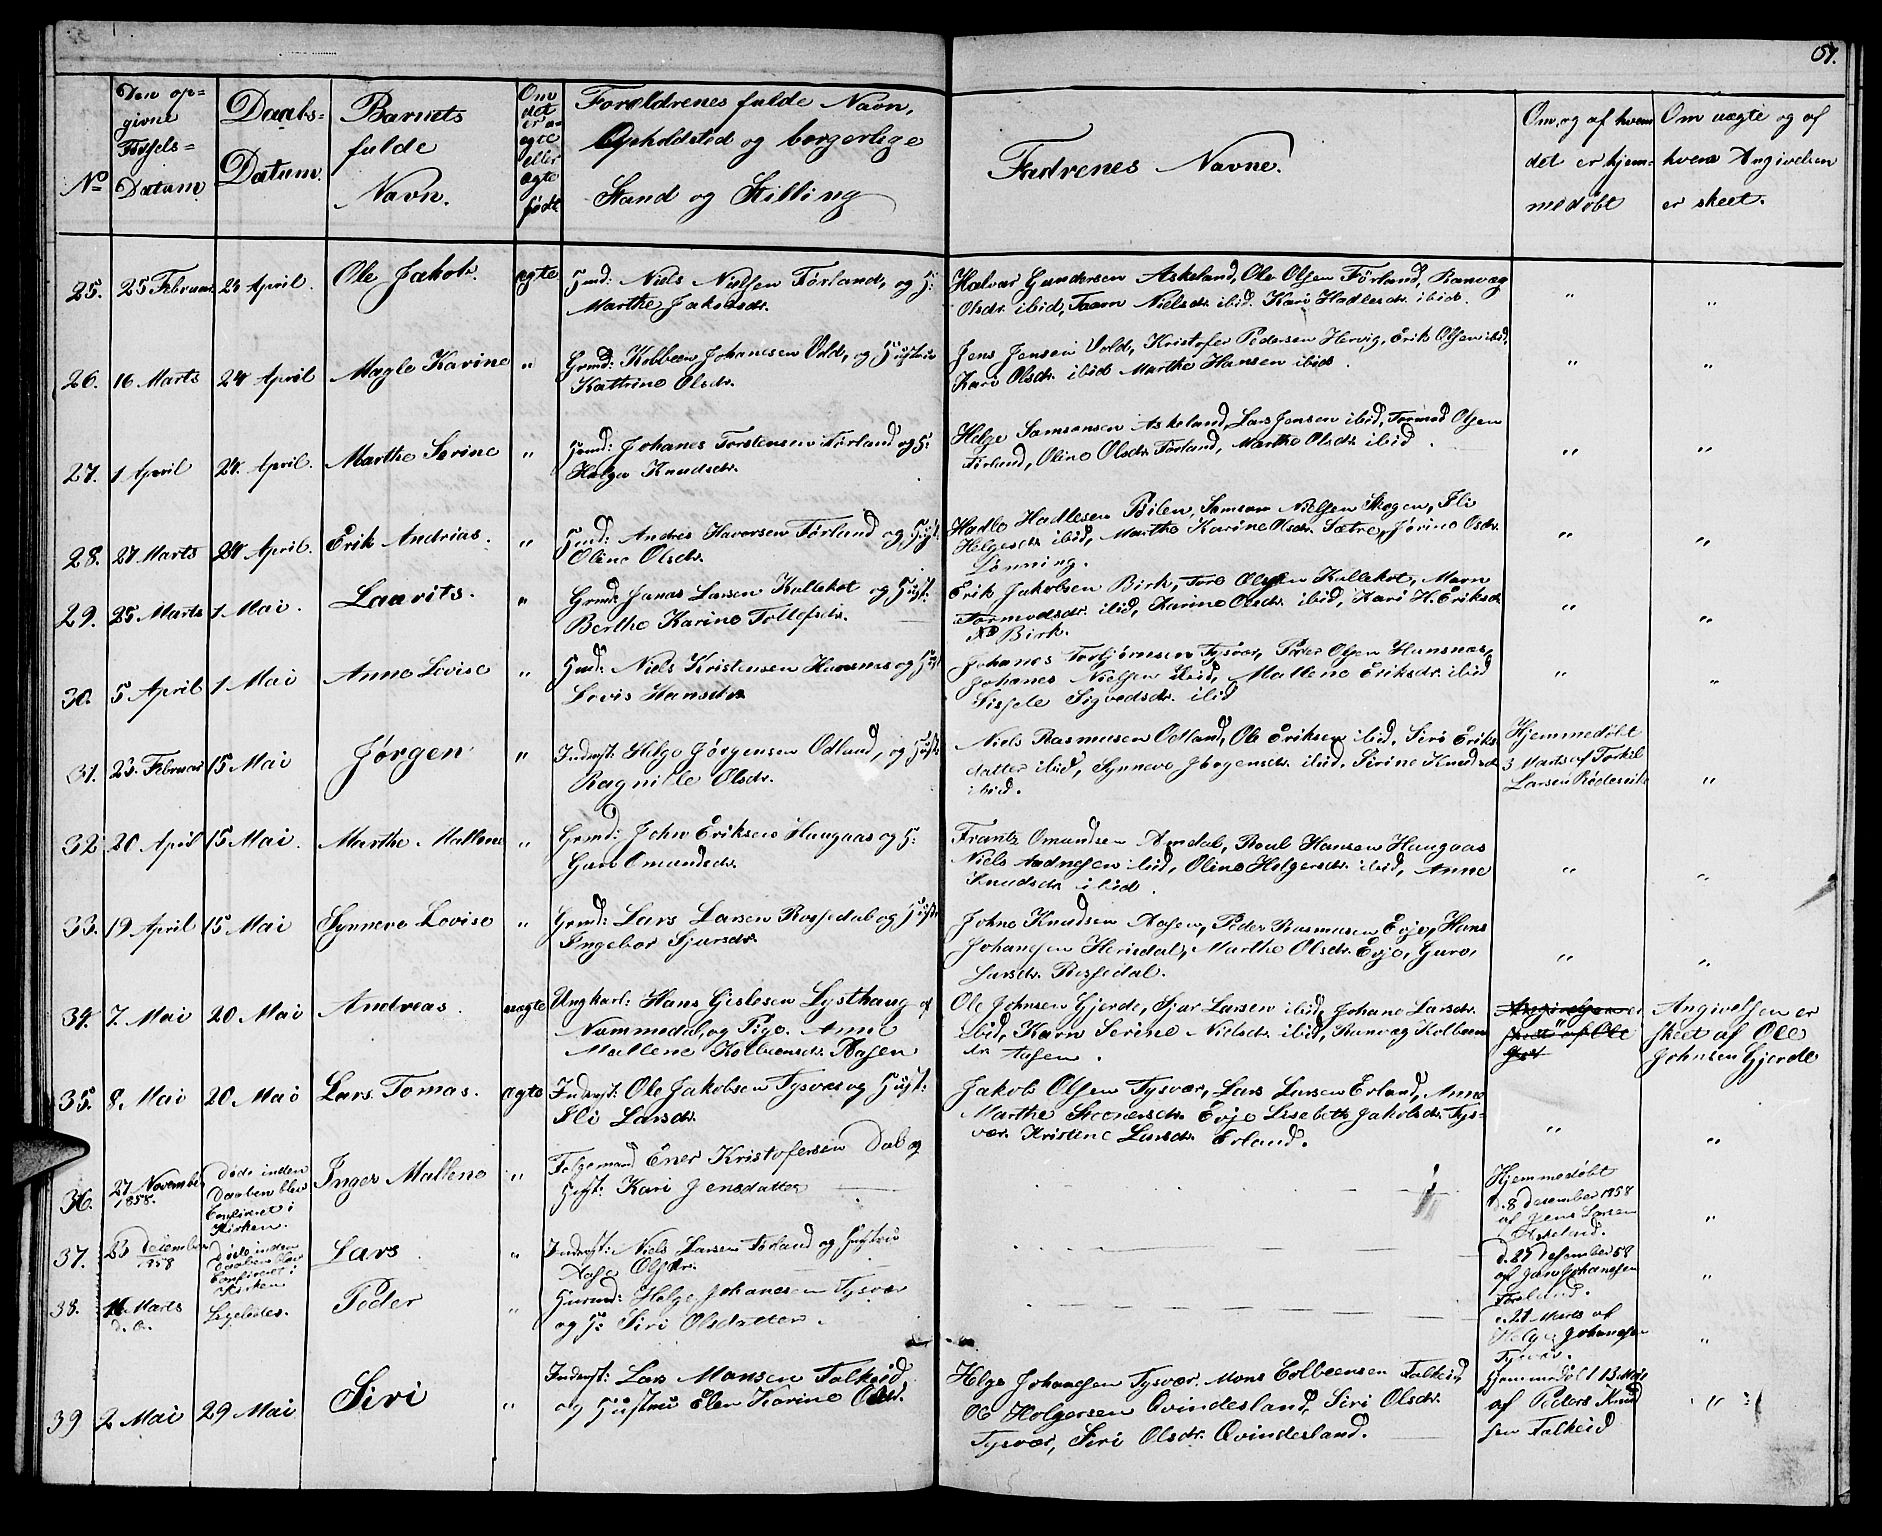 57.
No
Den op=
givne
Fødsels=
Datum
Daabs=
Datum.
Barnets
fulde
Navn.
Om
det
er u-
egte
eller
ægte
født
Forældrenes fulde Navn,
Opholdsted og borgerlige
Stand og Stilling
Fadrenes Navne.
Om, og af hvem
det er hjem=
medøbt
Om uægte og af
hvem Angivelsen
er skeet.
25. 25 Februar 24 April. Ole Jakob. ægte Gmd: Niels Nielsen Førland, og H:
Marthe Jakobsdr.
Halvar Gundersen Askeland, Ole Olsen Førland, Ranvæg
Olsdr. ibid, Taarn Nielsdr. ibid. Kari Hadlesdr. ibid. " "
26. 16 Marts 24 April Magle Karine " Grmd: Kolbeen Johanesen Vold, og Hustru
Kattrine Olsdr.
Jens Jensen Vold, Kristofer Pedersen Hervig, Erik Olsen ibid.
Kari Olsdr. ibid Marthe Hansen ibid. " "
27. 1 April 24. April. Marthe Serine " Grmd: Johanes Torstensen Førland og H:
Helga Knudsdr.
Helge Samsonsen Askeland, Lars Jensen ibid, Tormod Olsen
Førland, Oline Olsdr. Førland, Marthe Olsdr. ibid. " "
28. 27 Marts 24 April. Erik Andrias. " Gmd: Andres Havorsen Førland og Hust:
Oline Olsdr.
Hadle Hadlesen Bøilen, Samson Nielsen Skogen, Eli
Helgesdr. ibid, Marthe Karine Olsdr. Sætre, Jørine Olsdr.
Lønning. " "
29. 25 Marts 1 Mai. Laurits. " Grmd: Jonas Larsen Kallekot og Hust:
Berthe Karine Tollefsdr.
Erik Jakobsen Birk, Tore Olsen Kallekot, Marn
Tormodsdr. ibid, Karine Olsdr. ibid, Kari H. Eriksdr.
Birk. " "
30. 5 April 1 Mai Anne Lovise " Gmd: Niels Kristensen Hamnas og Hust:
Lovis Hansdtr
Johanes Torbjørnsen Tysvær, Peder Olsen Hamsnas,
Johanes Nielsen ibid, Mallene Eriksdr. ibid
Sissele Sigvedsdr. ibid " "
31. 23. Februar 15 Mai Jørgen " Inderst: Helge Jørgensen Odland, og Hust:
Ragnille Olsdr.
Niels Rasmusen Odland, Ole Eriksen ibid, Siri Eriks
datter ibid, Synneve Jørgensdr. ibid, Serine Knudsdr
ibid.
Hjemmedøbt
3 Marts af Torkil
Larsen "
32 20 April 15 Mai. Marthe Mallene " Grmd: John Eriksen Haugaas og H:
Guro Omundsdr.
Frantz Omundsen Amdal, Poul Hansen Haugaas
Niels Aadnesen ibid, Oline Holgersdr. ibid, Anne
Knudsdr ibid. " "
33. 19 April 15 Mai Synneve Lovise " Grmd: Lars Larsen Rossedal og Hust
Ingebor Sjursdr.
Johne Knudsen Aasen, Peder Rasmusen Evje, Hans
Johansen Herisdal, Marthe Olsdr. Evje, Guro,
Larsdr. Rossedal. " "
34. 7. Mai 20 Mai Andreas. uægte Ungkarl: Hans Gislesen Lysthaug af
Nummedal, og Pige. Anne
Mallene Kolbeensdr. Aasen
Ole Johnsen Gjerde, Sjur Larsen ibid, Johane Larsdr.
ibid, Karn Serine Nielsdr. ibid, Ranvæg Kolbeens
dr. Aasen.
Angivelsen er
skeet af Ole
Gjer
Angivelsen er
skeet af Ole
Johnsen Gjerde
35. 8. Mai 20 Mai Lars Tomas. ægte Inderst: Ole Jakobsen Tysvær og Hust:
Eli Larsdr.
Jakob Olsen Tysvær, Lars Larsen Erland, Anne
Marthe Steenersdr. Evje Lisebeth Jakobsdr. Tys=
vær. Kristine Larsdr. Erland. " "
36. 27 November
1858. Døde inden
Daaben blev
Confireret i
Kirken. Inger Mallene " Følgemand Ener Kristofersen Dal og
Hust: Kari Jensdatter
Hjemmedøbt
d. 8 Desember 1858
af Jens Larsen
Askeland. "
37. 23 December
1858 Døde inden
Daaben blev
Confireret i
Kirken Lars " Inderst: Niels Larsen Førland og Hustru
Aase Olsdr.
d. 27 Desember 58
af Jon Johansen
Førland. "
38. 16 Marts
d. A. Ligeledes. Peder " Gmd: Helge Johanesen Tysvær
og H: Siri Olsdatter.
21 Marts af
Helge Johanesen
Tysvær. "
39 2 Mai 29 Mai Siri " Inderst: Lars Monsen Falkeid
og Hustru Elen Karine Olsdr.
Helge Johanesen Tysvær. Mons Colbeensen Falkeid,
Ole Holgersen Qvindesland, Siri Olsdr.
Tysvær, Siri Olsdr. Qvindesland.
Hjemmedøbt 13. Mai
af Peders Knud
sen Falkeid "